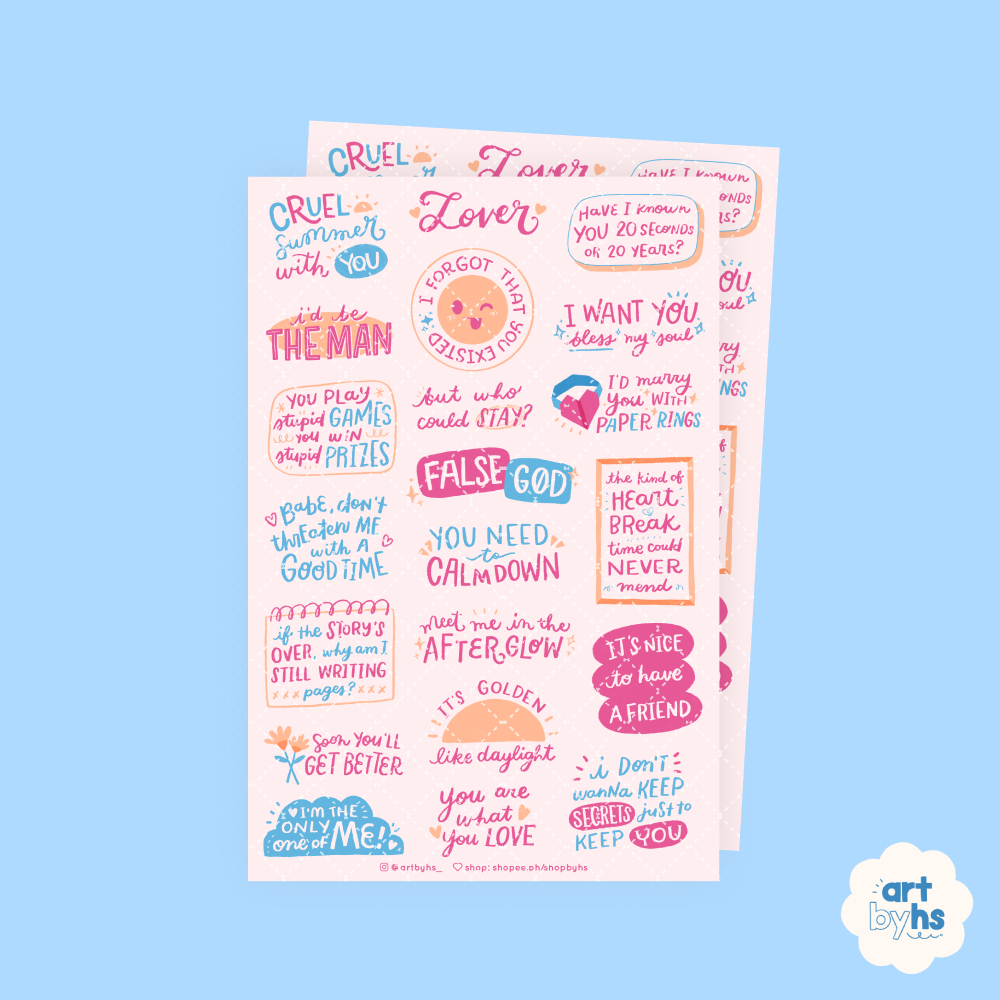 CRUEL
Summer
with YOU
Lover
HAVE I known
YOU 20 SECONDS
OR 20 YEARS?
I FORGOT THAT YOU EXISTED
i'd be
THE MAN
I WANT YOU
bless my soul
YOU PLAY
stupid GAMES
YOU WIN
stupid PRIZES
but who
could STAY?
I'D marry
you WITH
PAPER RINGS
FALSE
GOD
the kind of
HEART
BREAK
time could
NEVER
mend
Babe, don't
thrEaten ME
with A
GOOD TIME
YOU NEED
to
CALM DOWN
if the STORY'S
OVER, why am I
STILL WRITING
pages?
meet me in the
AFTERGLOW
IT'S NICE
to have
A FRIEND
IT'S GOLDEN
like daylight
Soon YOU'LL
GET BETTER
I'M THE
ONLY
one of ME!
you are
what
you LOVE
i DON'T
wanna KEEP
SECRETS just to
KEEP YOU
@artbyhs_ shop: shopee.ph/shopbyhs
CRUEL
Lover
HAVE I known
art
byhs